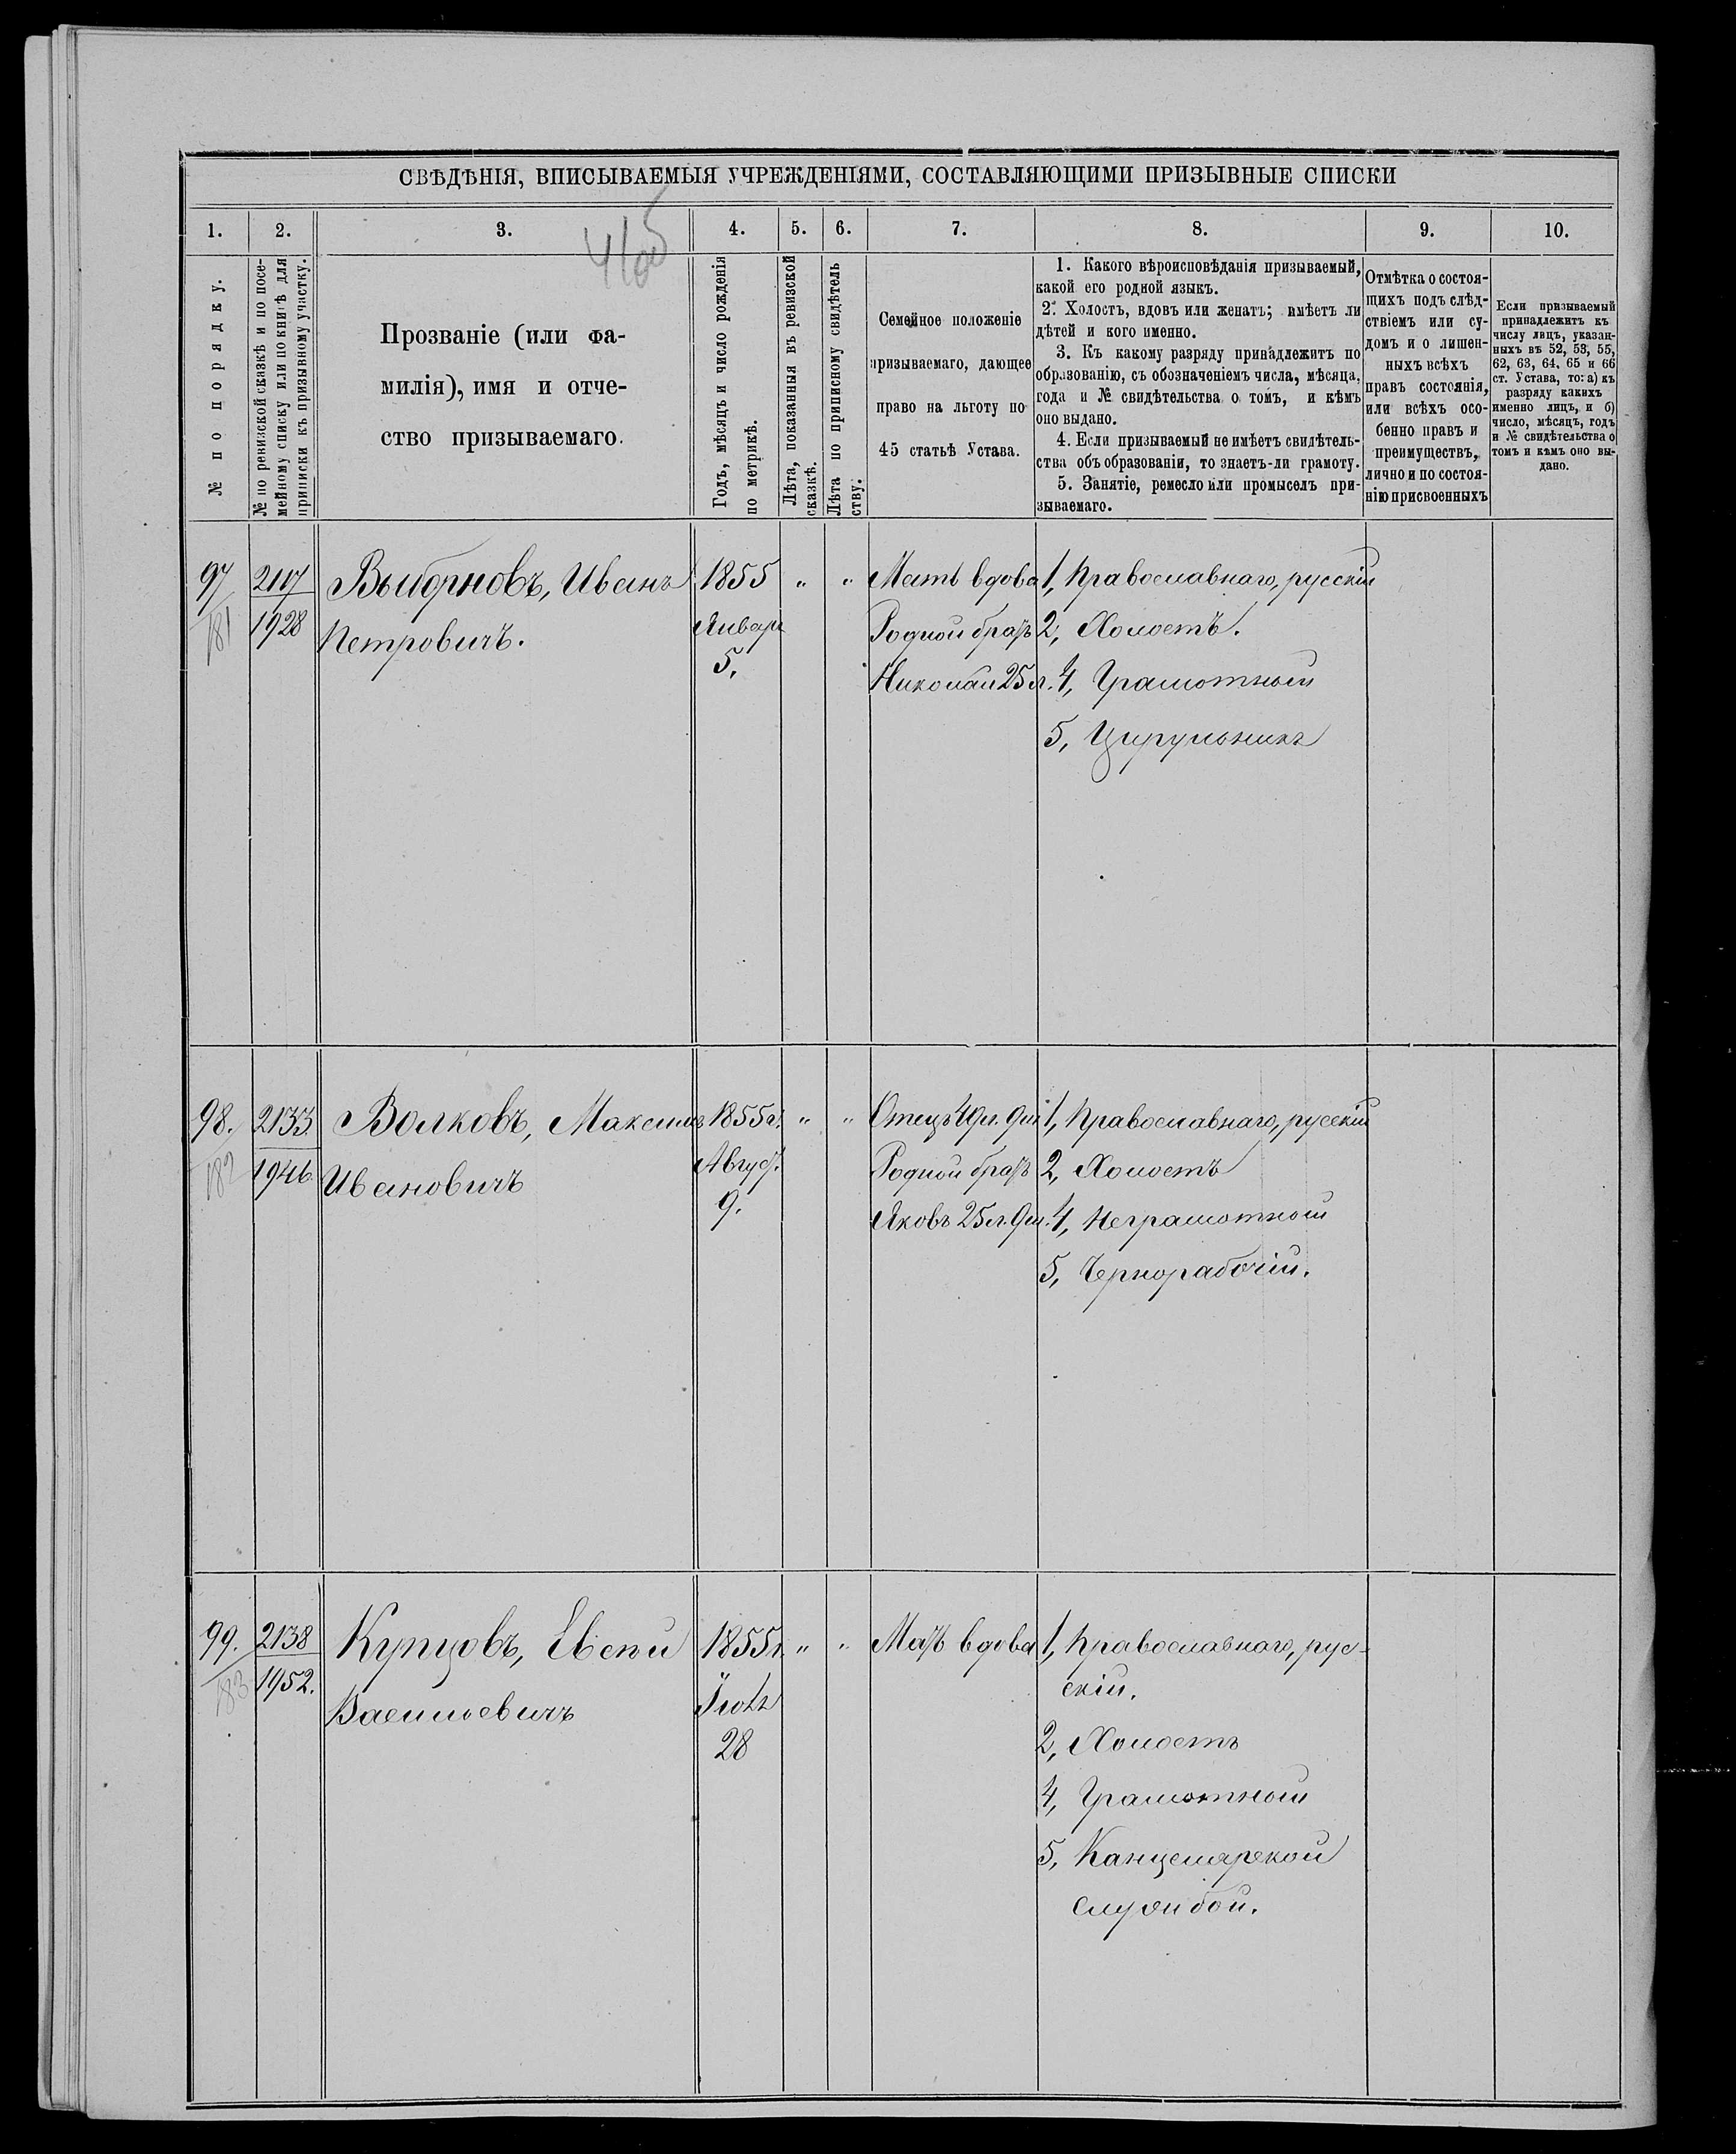 СВѢДѢНІЯ, ВПИСЫВАЕМЫЯ УЧРЕЖДЕНІЯМИ, СОСТАВЛЯЮЩИМИ ПРИЗЫВНЫЕ СПИСКИ
1. 2. 3. 4. 5. 6. 7. 8. 9. 10.
№ по порядку.
№ по ревизской сказкѣ и по посе-
мейному списку или по книгѣ для
приписки къ призывному участку.
Прозваніе (или фа-
милія), имя и отче-
ство призываемаго.
Годъ, мѣсяцъ и число рожденія
по метрикѣ.
Лѣта, показанныя въ ревизской
сказкѣ.
Лѣта по приписному свидѣтель
ству.
Семейное положеніе
призываемаго, дающее
право на льготу по
45 статьѣ Устава.
1. Какого вѣроисповѣданія призываемый,
какой его родной языкъ.
2. Холостъ, вдовъ или женатъ; имѣетъ ли
дѣтей и кого именно.
3. Къ какому разряду принадлежитъ по
образованію, съ обозначеніемъ числа, мѣсяца,
года и № свидѣтельства о томъ, и кѣмъ
оно выдано.
4. Если призываемый не имѣетъ свидѣтель-
ства объ образованіи, то знаетъ-ли грамоту.
5. Занятіе, ремесло или промыселъ при-
зываемаго.
Отмѣтка о состоя-
щихъ подъ слѣд-
ствіемъ или су-
домъ и о лишен-
ныхъ всѣхъ
правъ состоянія,
или всѣхъ осо-
бенно правъ и
преимуществъ,
лично и по состоя-
нію присвоенныхъ
Если призываемый
принадлежитъ къ
числу лицъ, указан-
ныхъ въ 52, 53, 55,
62, 63, 64, 65 и 66
ст. Устава, то: а) къ
разряду какихъ
именно лицъ, и б)
число, мѣсяцъ, годъ
и № свидѣтельства о
томъ и кѣмъ оно вы-
дано.
97
181
2117
1928
Выборновъ, Иванъ
Петровичъ.
1855
Январ
5.
" "
Мать вдова
Родной братъ
Николай 25 л.
1, Православнаго, русскій
2, Холостъ.
4, Грамотный
5, Цирульникъ
98.
182
2133
1946.
Волковъ, Максимъ
Ивановичъ
1855 г.
Август.
9.
" "
Отецъ 49 л. 9 м
Родной братъ
Яковъ 25 л. 9 м.
1, Православнаго, русскій
2, Холостъ
4, Неграмотный
5, Чернорабочій.
99.
183
2138
1952.
Купцовъ, Евсѣй
Васильевичъ
1855 г.
28
" "
Мать вдова
1, Православнаго, рус-
скій.
2, Холостъ
4, Грамотный
5, Канцелярской
службой.